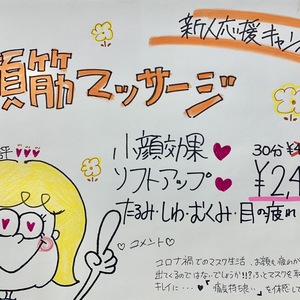 新人応援キャン
顔筋マッサージ
評
小顔効果
30分
ソフトアップ
¥2,4
たるみ・しわ・むくみ・目の疲れ
コメント
コロナ禍でのマスク生活、お顔も疲れが
出てくるのではないでしょうか!!?ふとマスクを
キレイに・・・「痛気持ち良い」を体感して